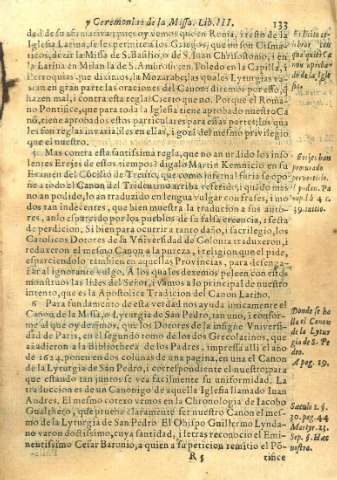 y Ceremonias de la Missa. Lib. III. 133
dad de su afirmativa; pues oy vemos que en Roma, i resto de la
Iglesia Latina, se les permite a los Griegos, que no son Cismaticos,
dezir la Missa de S. Basilio, o de S. Juan Chrisostomo, i en
la Latina en Milan la de S. Ambrosio; en Toledo en la Capilla, i
Parroquias que diximos, la Mozarabe, las quales Lyturgias varian
en gran parte las oraciones del Canon: diremos por esso, q̃
hazen mal, i contra esta regla? Cierto que no. Porque el Romano
Pontifice, que para toda la Iglesia tiene aprobado nuestro Canõ,
tiene aprobados estos particulares para essas partes; los quales
son regla invariable en ellas, i goza del mesmo privilegio
que el nuestro.
5 Mas contra esta santissima regla, que no an urdido los infolentes
Erejes de estos tiempos? digalo Martin Kemnicio en su
Examen del Cõcilio de Trento, que como infernal furia se opone
a todo el Canon del Tridentino arriba referido; i quãdo mas
no an podido, lo an traduzido en lengua vulgar con frases, i modos
tan indecentes, que bien muestra la traducion a sus autores,
anlo esparcido por los pueblos de su falsa creencia, i secta
de perdicion. Si bien para ocurrir a tanto daño, i sacrilegio, los
Catolicos Dotores de la Vniversidad de Colonia traduxeron, i
reduxeron el mesmo Canon a la pureza, i religion que pide,
esparciendolo tambien en aquellas Provincias, para desengañar
al ignorante vulgo. A los quales dexemos peleen con estos
monstruos las lides del Señor, i vamos a lo principal de nuestro
intento, que es la Apostolica Tradicion del Canon Latino.
6 Para fundamento de esta verdad nos ayuda unicamente el
Canon de la Missa, o Lyturgia de San Pedro, tan uno, i conforme
al que oy dezimos, que los Dotores de la insigne Vniversidad
de Paris, en el segundo tomo de los dos Grecolatinos, que
añadieron a la Bibliotheca de los Padres, impressa alli el año
de 1624. ponen en dos colunas de una pagina, en una el Canon
de la Lyturgia de San Pedro, i correspondiente el nuestro para
que estando tan juntos se vea facilmente su uniformidad. La
traduccion es de un Canonigo de aquella Iglesia llamado Iuan
Andres. El mesmo cotexo vemos en la Chronologia de Iacobo
Gualthero, que prueve claramente ser nuestro Canon el mesmo
de la Lyturgia de San Pedro. El Obispo Guillermo Lyndano
varon doctissimo, cuya santidad, i letras reconocio el Eminentissimo
Cesar Baronio, a quien a su peticion remitio el Põ-
R 5 tifice
Donde se halla
el Canon
de la Lyturgia
de S. Pedro.
A pag. 19.